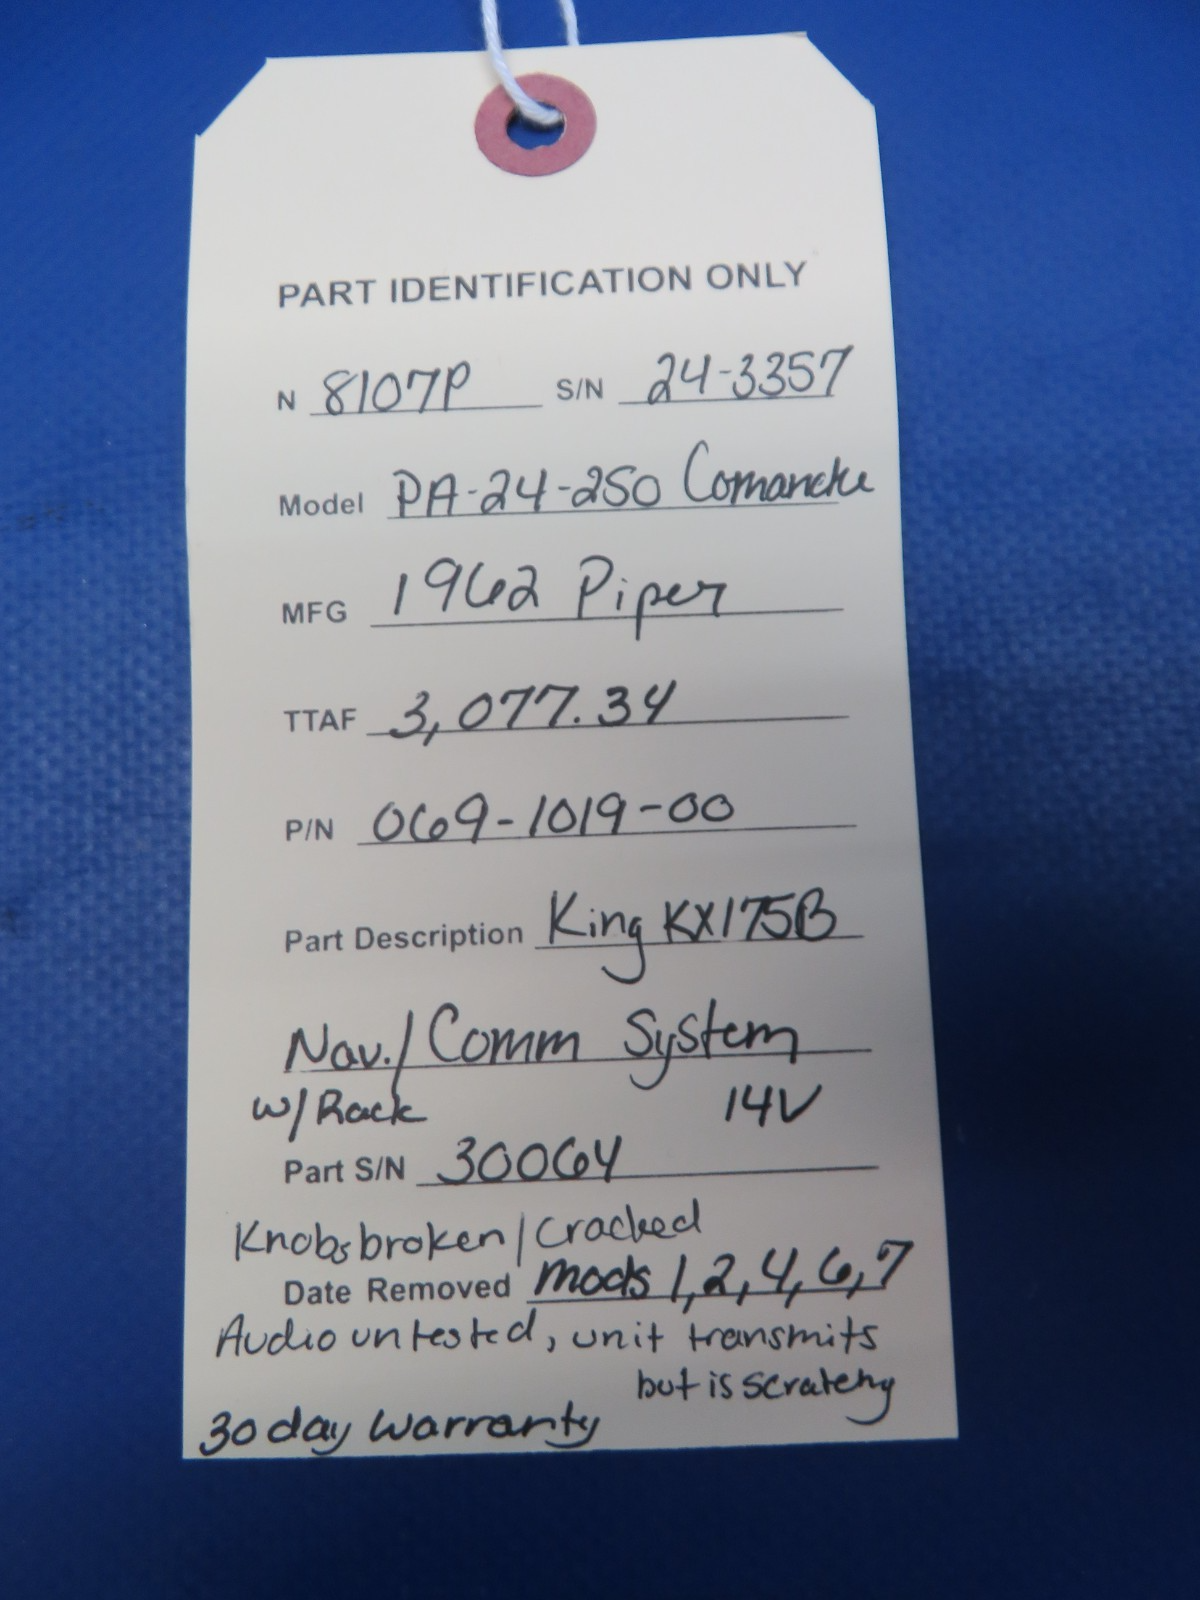 PART IDENTIFICATION ONLY
N 8107P S/N 24-3357
Model PA-24-250 Comanche
MFG 1962 Piper
TTAF 3,077.34
P/N 069-1019-00
Part Description King KX175B
Nav./Comm System
w/Rack 14V
Part S/N 30064
Knobs broken/cracked
Date Removed Mods 1,2,4,6,7
Audio untested, unit transmits
but is scratchy
30 day Warranty